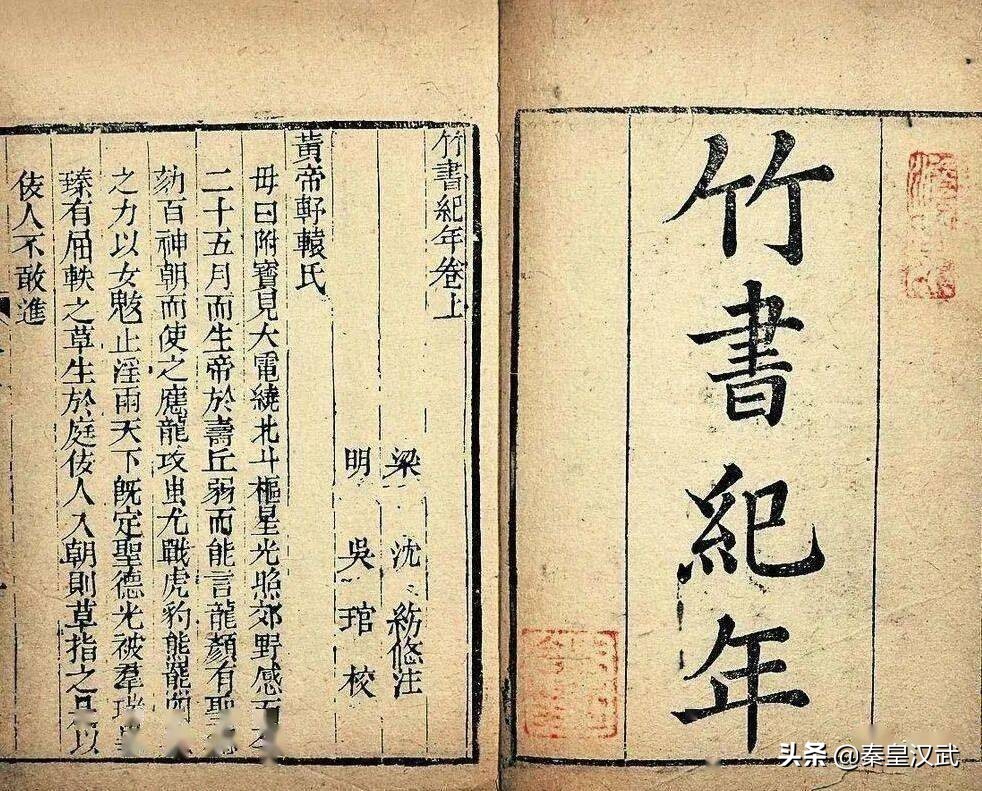 竹書紀年
竹書紀年卷上
梁 沈 注
明 吳琯校
黃帝軒轅氏
母曰附寶見大電繞北斗樞星光照郊野感而
二十五月而生帝於壽丘弱而能言龍顏有聖
劾百神朝而使之應龍攻蚩尤戰虎豹熊羆四
之力以女魃止淫雨天下旣定聖德光被羣瑞畢
臻有屈軼之草生於庭佞人入朝則草指之是以
佞人不敢進
头条 @秦皇汉武